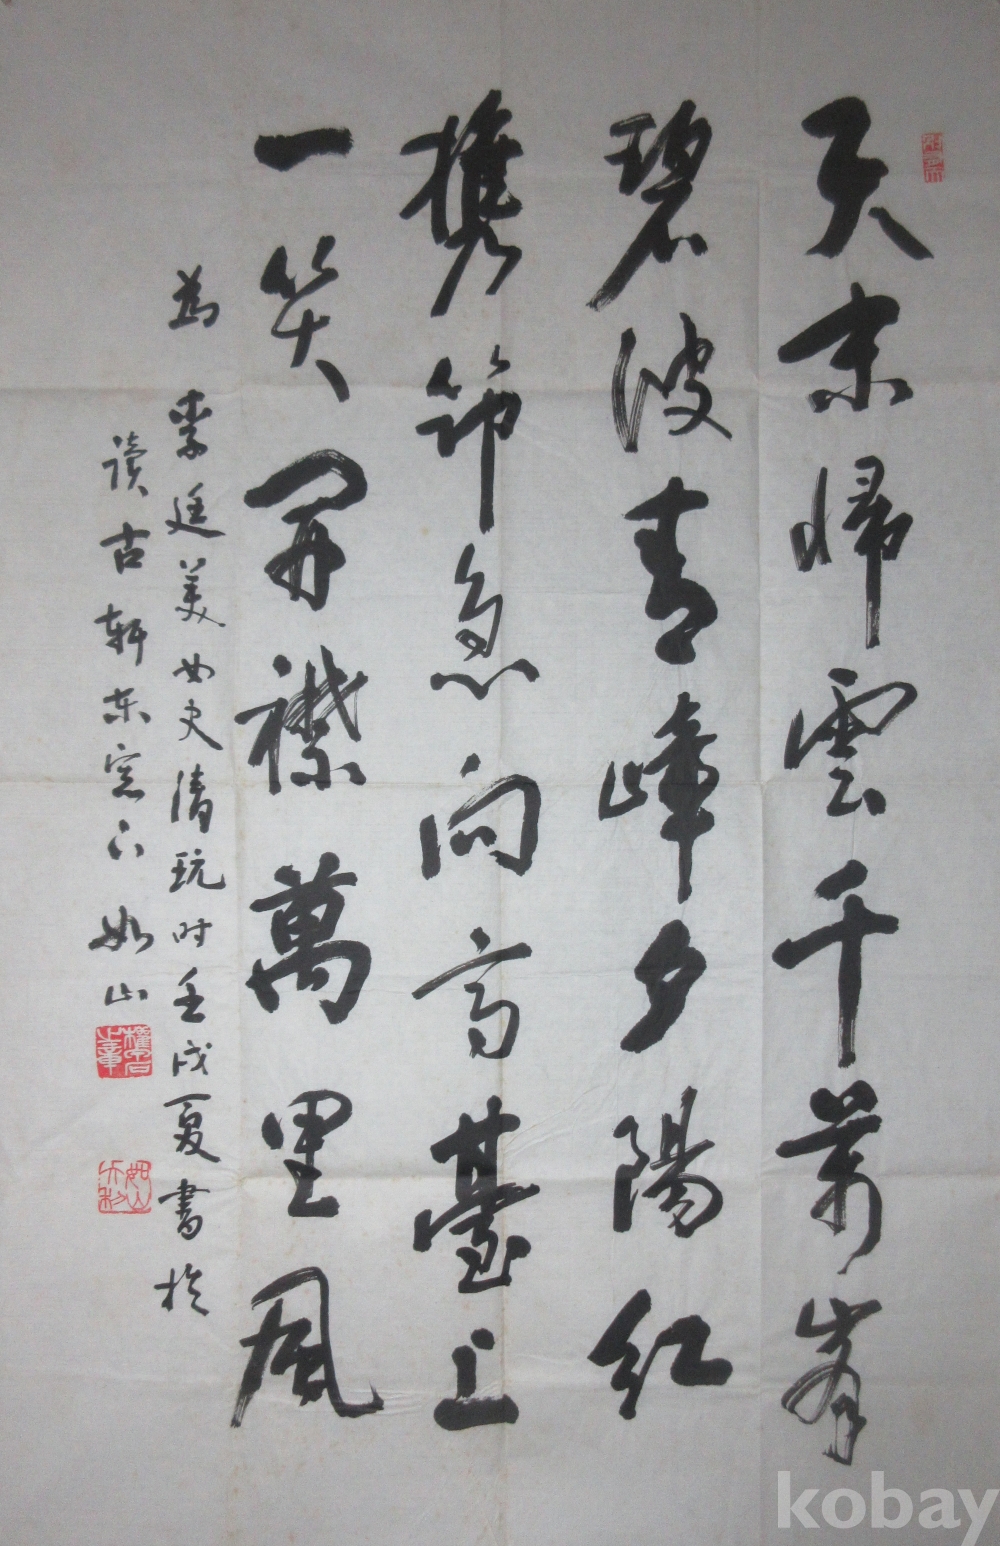 天末歸雲千萬峯
碧波青嶂夕陽紅
携笻急向高臺上
一笑開襟萬里風
為 李廷美女史清玩时壬戌夏書於
读古軒東窓下 如山
kobay